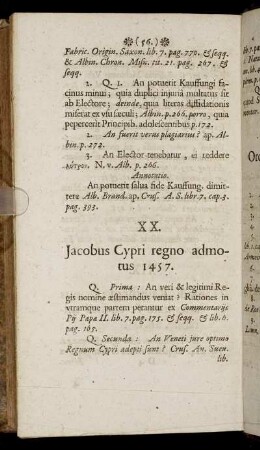 (56.)
Fabric. Origin. Saxon. lib. 7. pag. 770. & seqq.
& Albin. Chron. Misn. tit. 21. pag. 267. &
seqq.
2. Q. 1. An potuerit Kauffungi fa-
cinus minui; quia duplici injuriâ mulctatus sit
ab Electore; deinde, quia literas diffidationis
miserat ex usu sæculi; Albin. p. 266. porro, quia
pepercerit Principib. adolescentibus p. 172.
2. An fuerit verus plagiarius? ap. Al-
bin. p. 272.
3. An Elector tenebatur, ei reddere
N. v. Alb. p. 266.
Annotatio.
An potuerit salva fide Kauffung. dimit-
tere Alb. Brand. ap. Crus. A. S. libr. 7. cap. 3.
pag. 393.
XX.
Jacobus Cypri regno admo-
tus 1457.
Q. Prima: An veri & legitimi Re-
gis nomine æstimandus veniat? Rationes in
utramque partem petantur ex Commentarijs
Pij Papæ II. lib. 7. pag. 175. & seqq. & lib. 6.
pag. 165.
Q. Secunda: An Veneti jure optimo
Regnum Cypri adepti sunt? Crus. An. Suev.
lib.